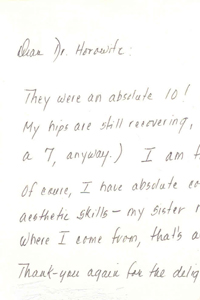 Dear Dr. Horowitz:
They were an absolute 10!
My hips are still recovering,
a 7, anyway.) I am t
Of course, I have absolute co
aesthetic skills – my sister
Where I come from, that's a
Thank-you again for the delig